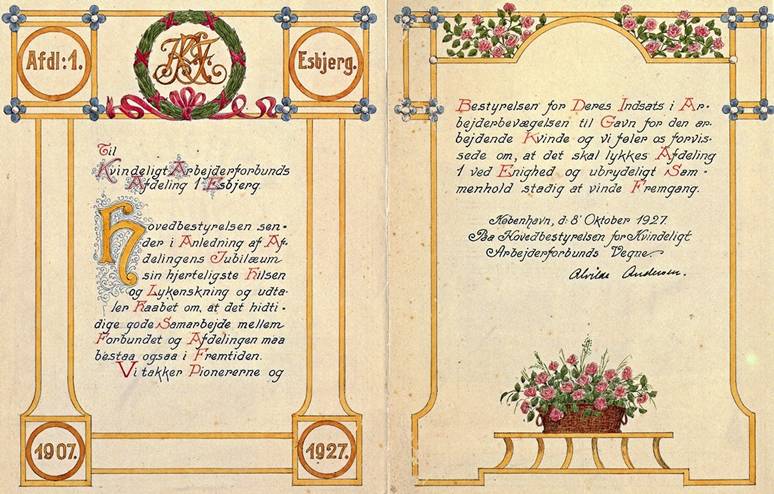 Afdl: 1.
KAF
Esbjerg.
Til
Kvindeligt Arbejderforbunds
Afdeling 1 Esbjerg.
Hovedbestyrelsen sen-
der i Anledning af Af-
delingens Jubilæum
sin hjerteligste Hilsen
og Lykønskning og udta-
ler Haabet om, at det hidti-
dige gode Samarbejde mellem
Forbundet og Afdelingen maa
bestaa ogsaa i Fremtiden.
Vi takker Pionererne og
1907.
1927.
Bestyrelsen for Deres Indsats i Ar-
bejderbevægelsen til Gavn for den ar-
bejdende Kvinde og vi føler os forvis-
sede om, at det skal lykkes Afdeling
1 ved Enighed og ubrydeligt Sam-
menhold stadig at vinde Fremgang.
København, d. 8' Oktober 1927.
Paa Hovedbestyrelsen for Kvindeligt
Arbejderforbunds Vegne.
Alvilda Andersen.